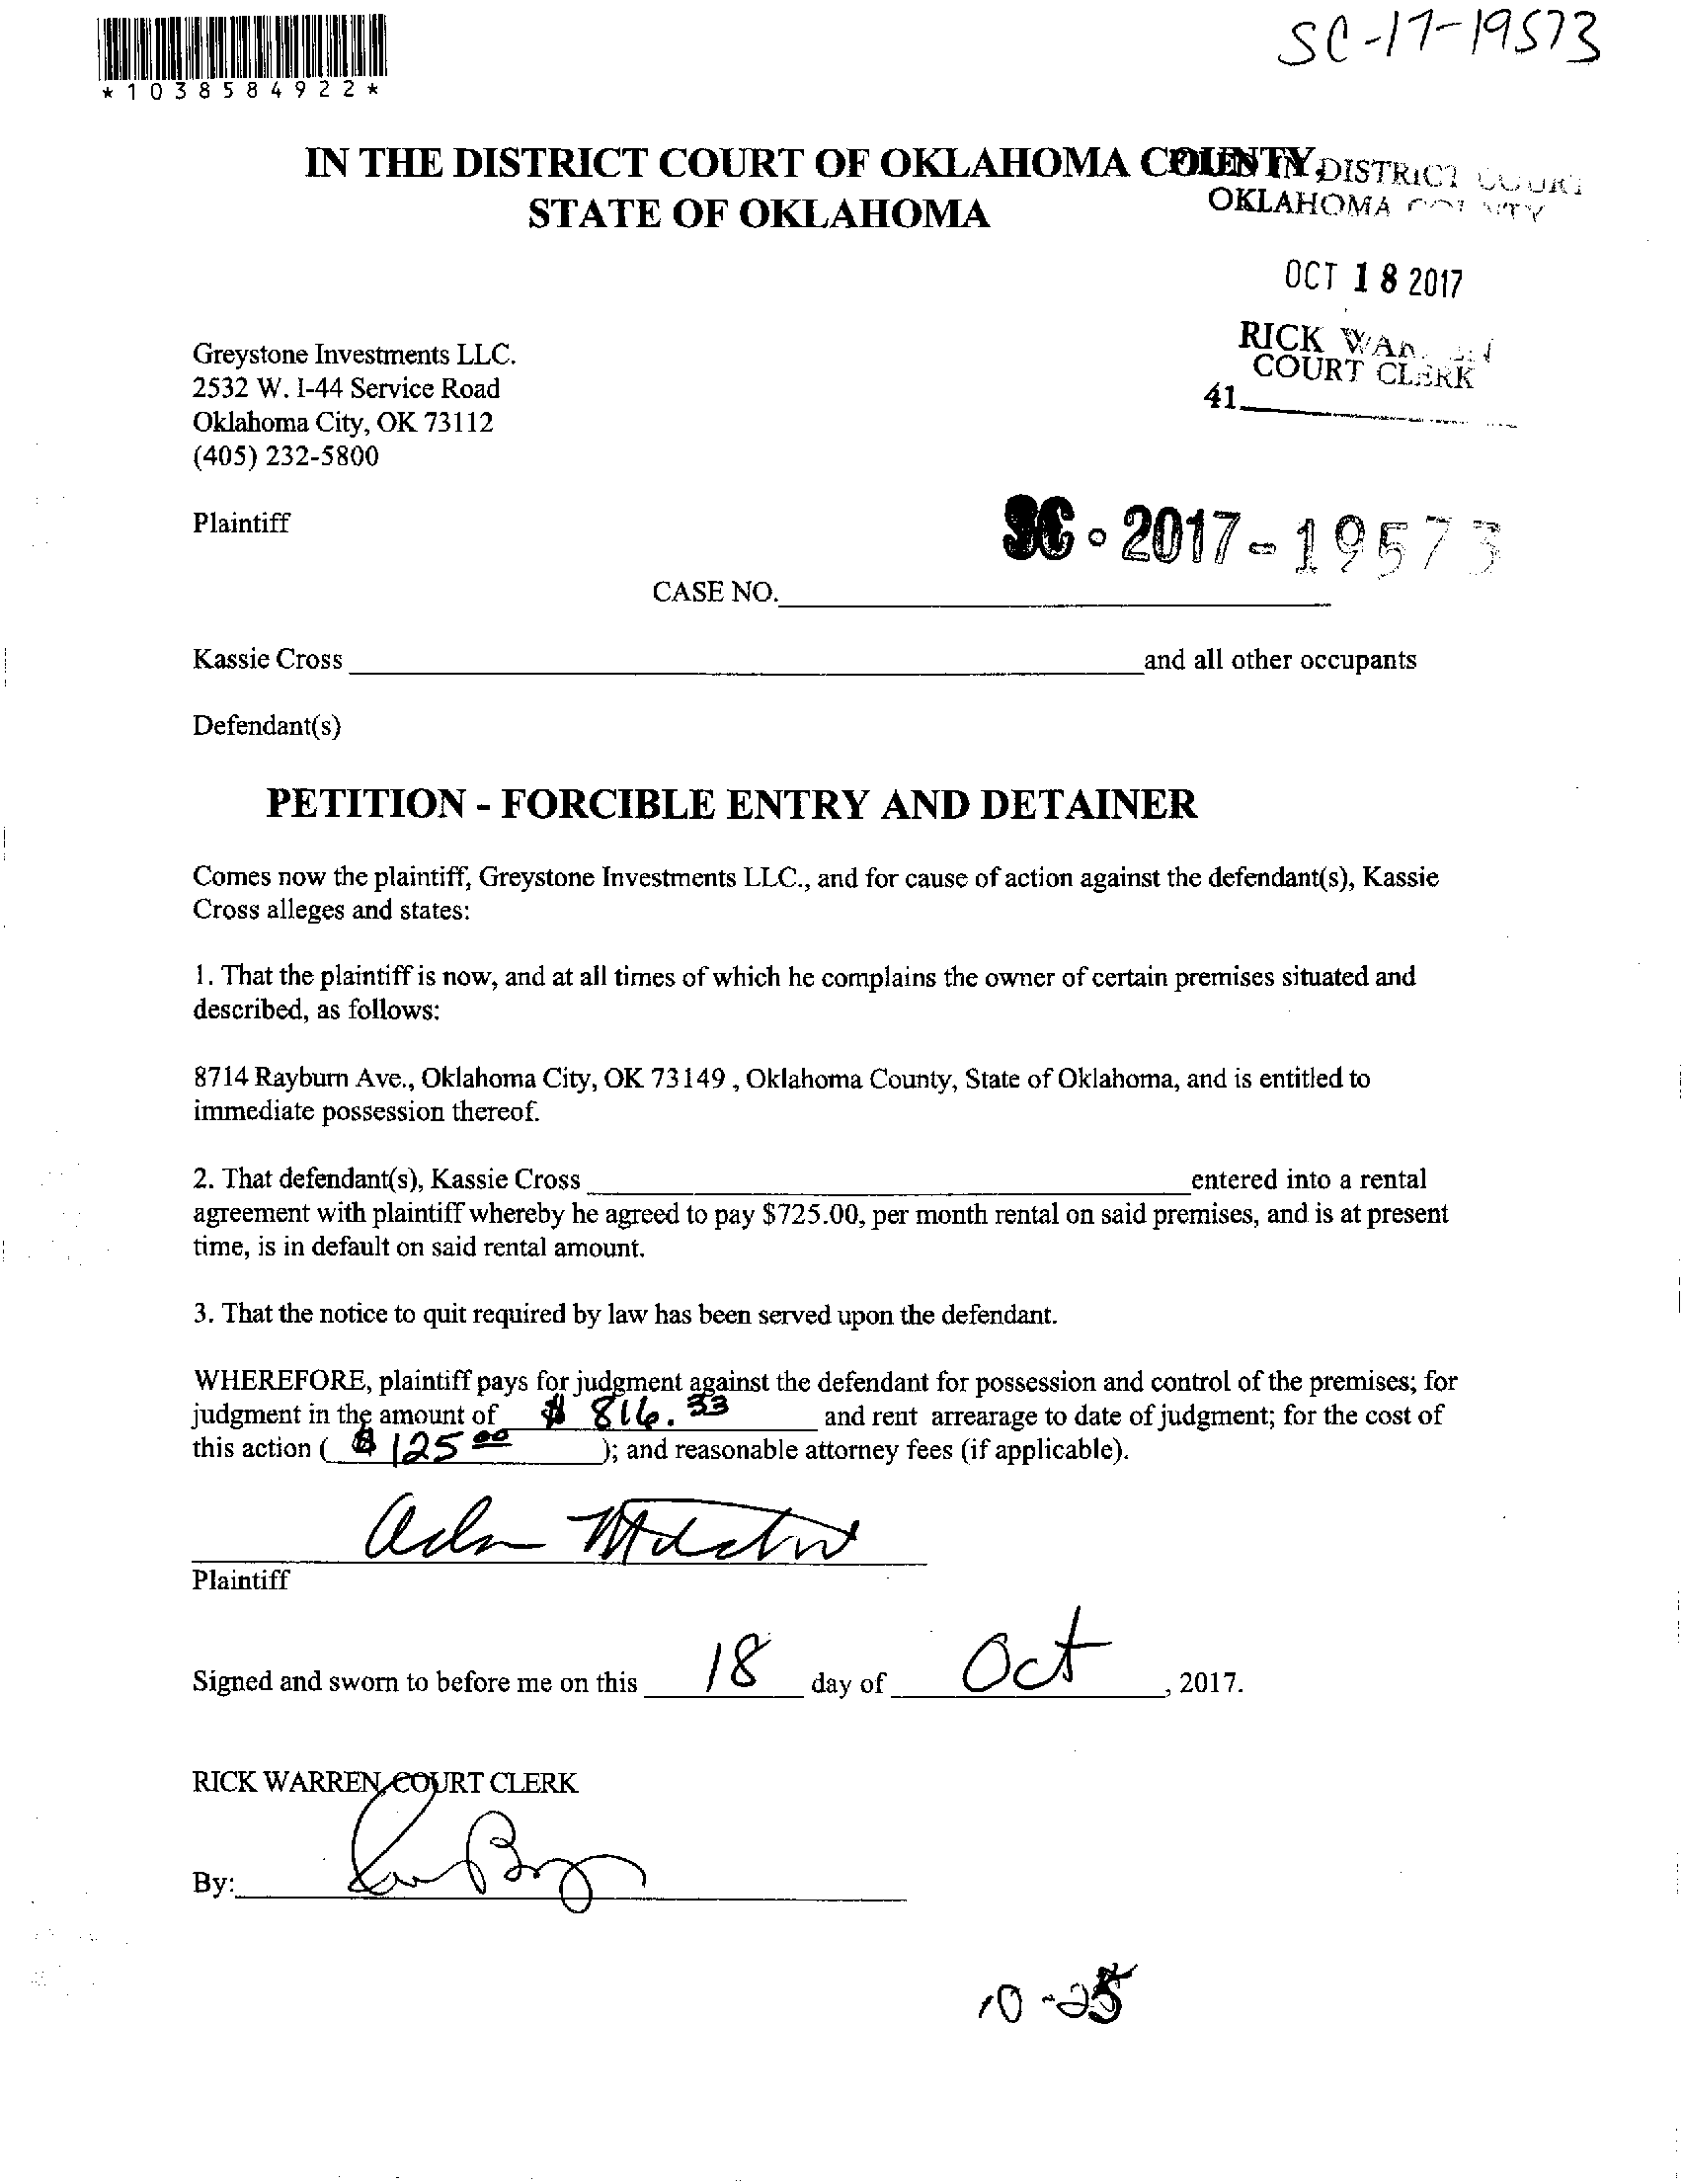 SC-17-19573
*1038584922*
IN THE DISTRICT COURT OF OKLAHOMA COUNTY,
STATE OF OKLAHOMA
FILED IN DISTRICT COURT
OKLAHOMA COUNTY
OCT 18 2017
RICK WARREN
COURT CLERK
41
Greystone Investments LLC.
2532 W. I-44 Service Road
Oklahoma City, OK 73112
(405) 232-5800
Plaintiff
SC-2017-19573
CASE NO.
Kassie Cross and all other occupants
Defendant(s)
PETITION - FORCIBLE ENTRY AND DETAINER
Comes now the plaintiff, Greystone Investments LLC., and for cause of action against the defendant(s), Kassie
Cross alleges and states:
1. That the plaintiff is now, and at all times of which he complains the owner of certain premises situated and
described, as follows:
8714 Rayburn Ave., Oklahoma City, OK 73149 , Oklahoma County, State of Oklahoma, and is entitled to
immediate possession thereof.
2. That defendant(s), Kassie Cross entered into a rental
agreement with plaintiff whereby he agreed to pay $725.00, per month rental on said premises, and is at present
time, is in default on said rental amount.
3. That the notice to quit required by law has been served upon the defendant.
WHEREFORE, plaintiff pays for judgment against the defendant for possession and control of the premises; for
judgment in the amount of $ 816.33 and rent arrearage to date of judgment; for the cost of
this action ( $125.00 ); and reasonable attorney fees (if applicable).
Plaintiff
Signed and sworn to before me on this 18 day of Oct, 2017.
RICK WARREN, COURT CLERK
By:
10-25